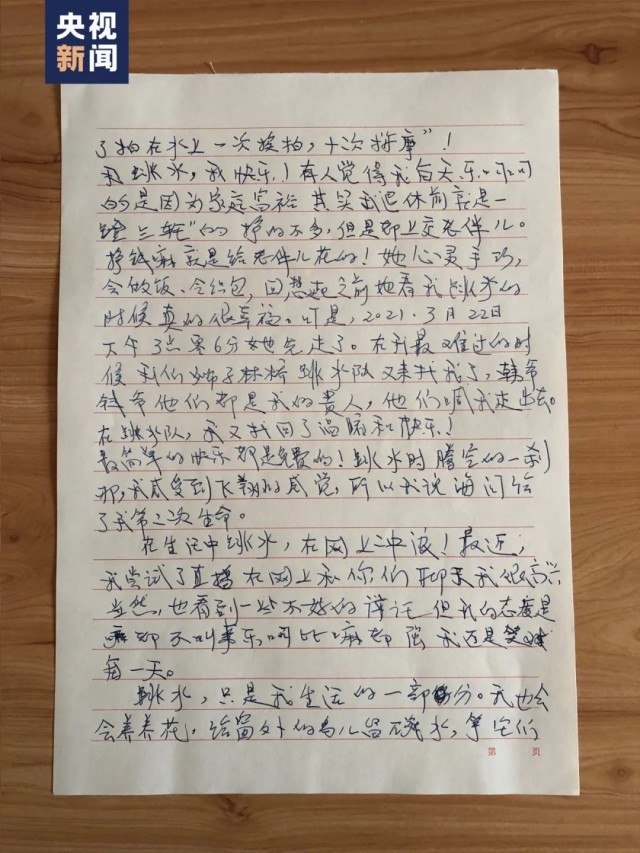 央视
新闻
了拍在水上一次挨拍，十次按摩"！
我跳水，我快乐！有人觉得我每天乐呵呵
的是因为家庭富裕 其实我退休前就是一
"蹬三轮"的 挣的不多，但是都上交老伴儿。
挣钱嘛就是给老伴儿花的！她心灵手巧，
会做饭、会红包，回想起之前她看我跳水的
时候真的很幸福。可是，2021.3月22日
下午3点零6分她先走了。在我最难过的时
候 我们狮子林桥跳水队又来找我了，韩爷
钱爷他们都是我的贵人，他们唤我走出去。
在跳水队，我又找回了温暖和快乐！
最简单的快乐都是免费的！跳水时腾空的一刹
那，我感受到飞翔的感觉，所以我说海河给
了我第二次生命。
在生活中跳水，在网上冲浪！最近，
我尝试了直播在网上和你们聊天我很高兴
当然，也看到一些不好的评论 但我的态度是
嘛都不叫事乐呵比嘛都强 我还是笑对
每一天。
跳水，只是我生活的一部分。我也会
会养养花，给窗外的鸟儿留碗水，等它们
第 页